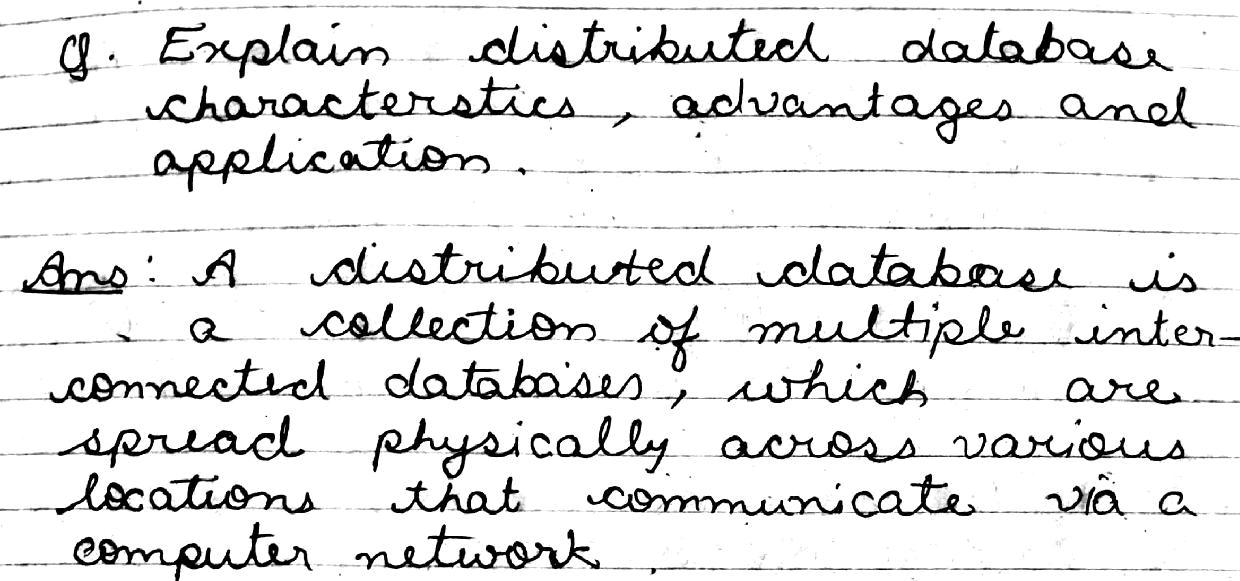 Q. Explain distributed database
characterstics, advantages and
application.
Ans: A distributed database is
a collection of multiple inter-
connected databases, which are
spread physically across various
locations that communicate via a
computer network.